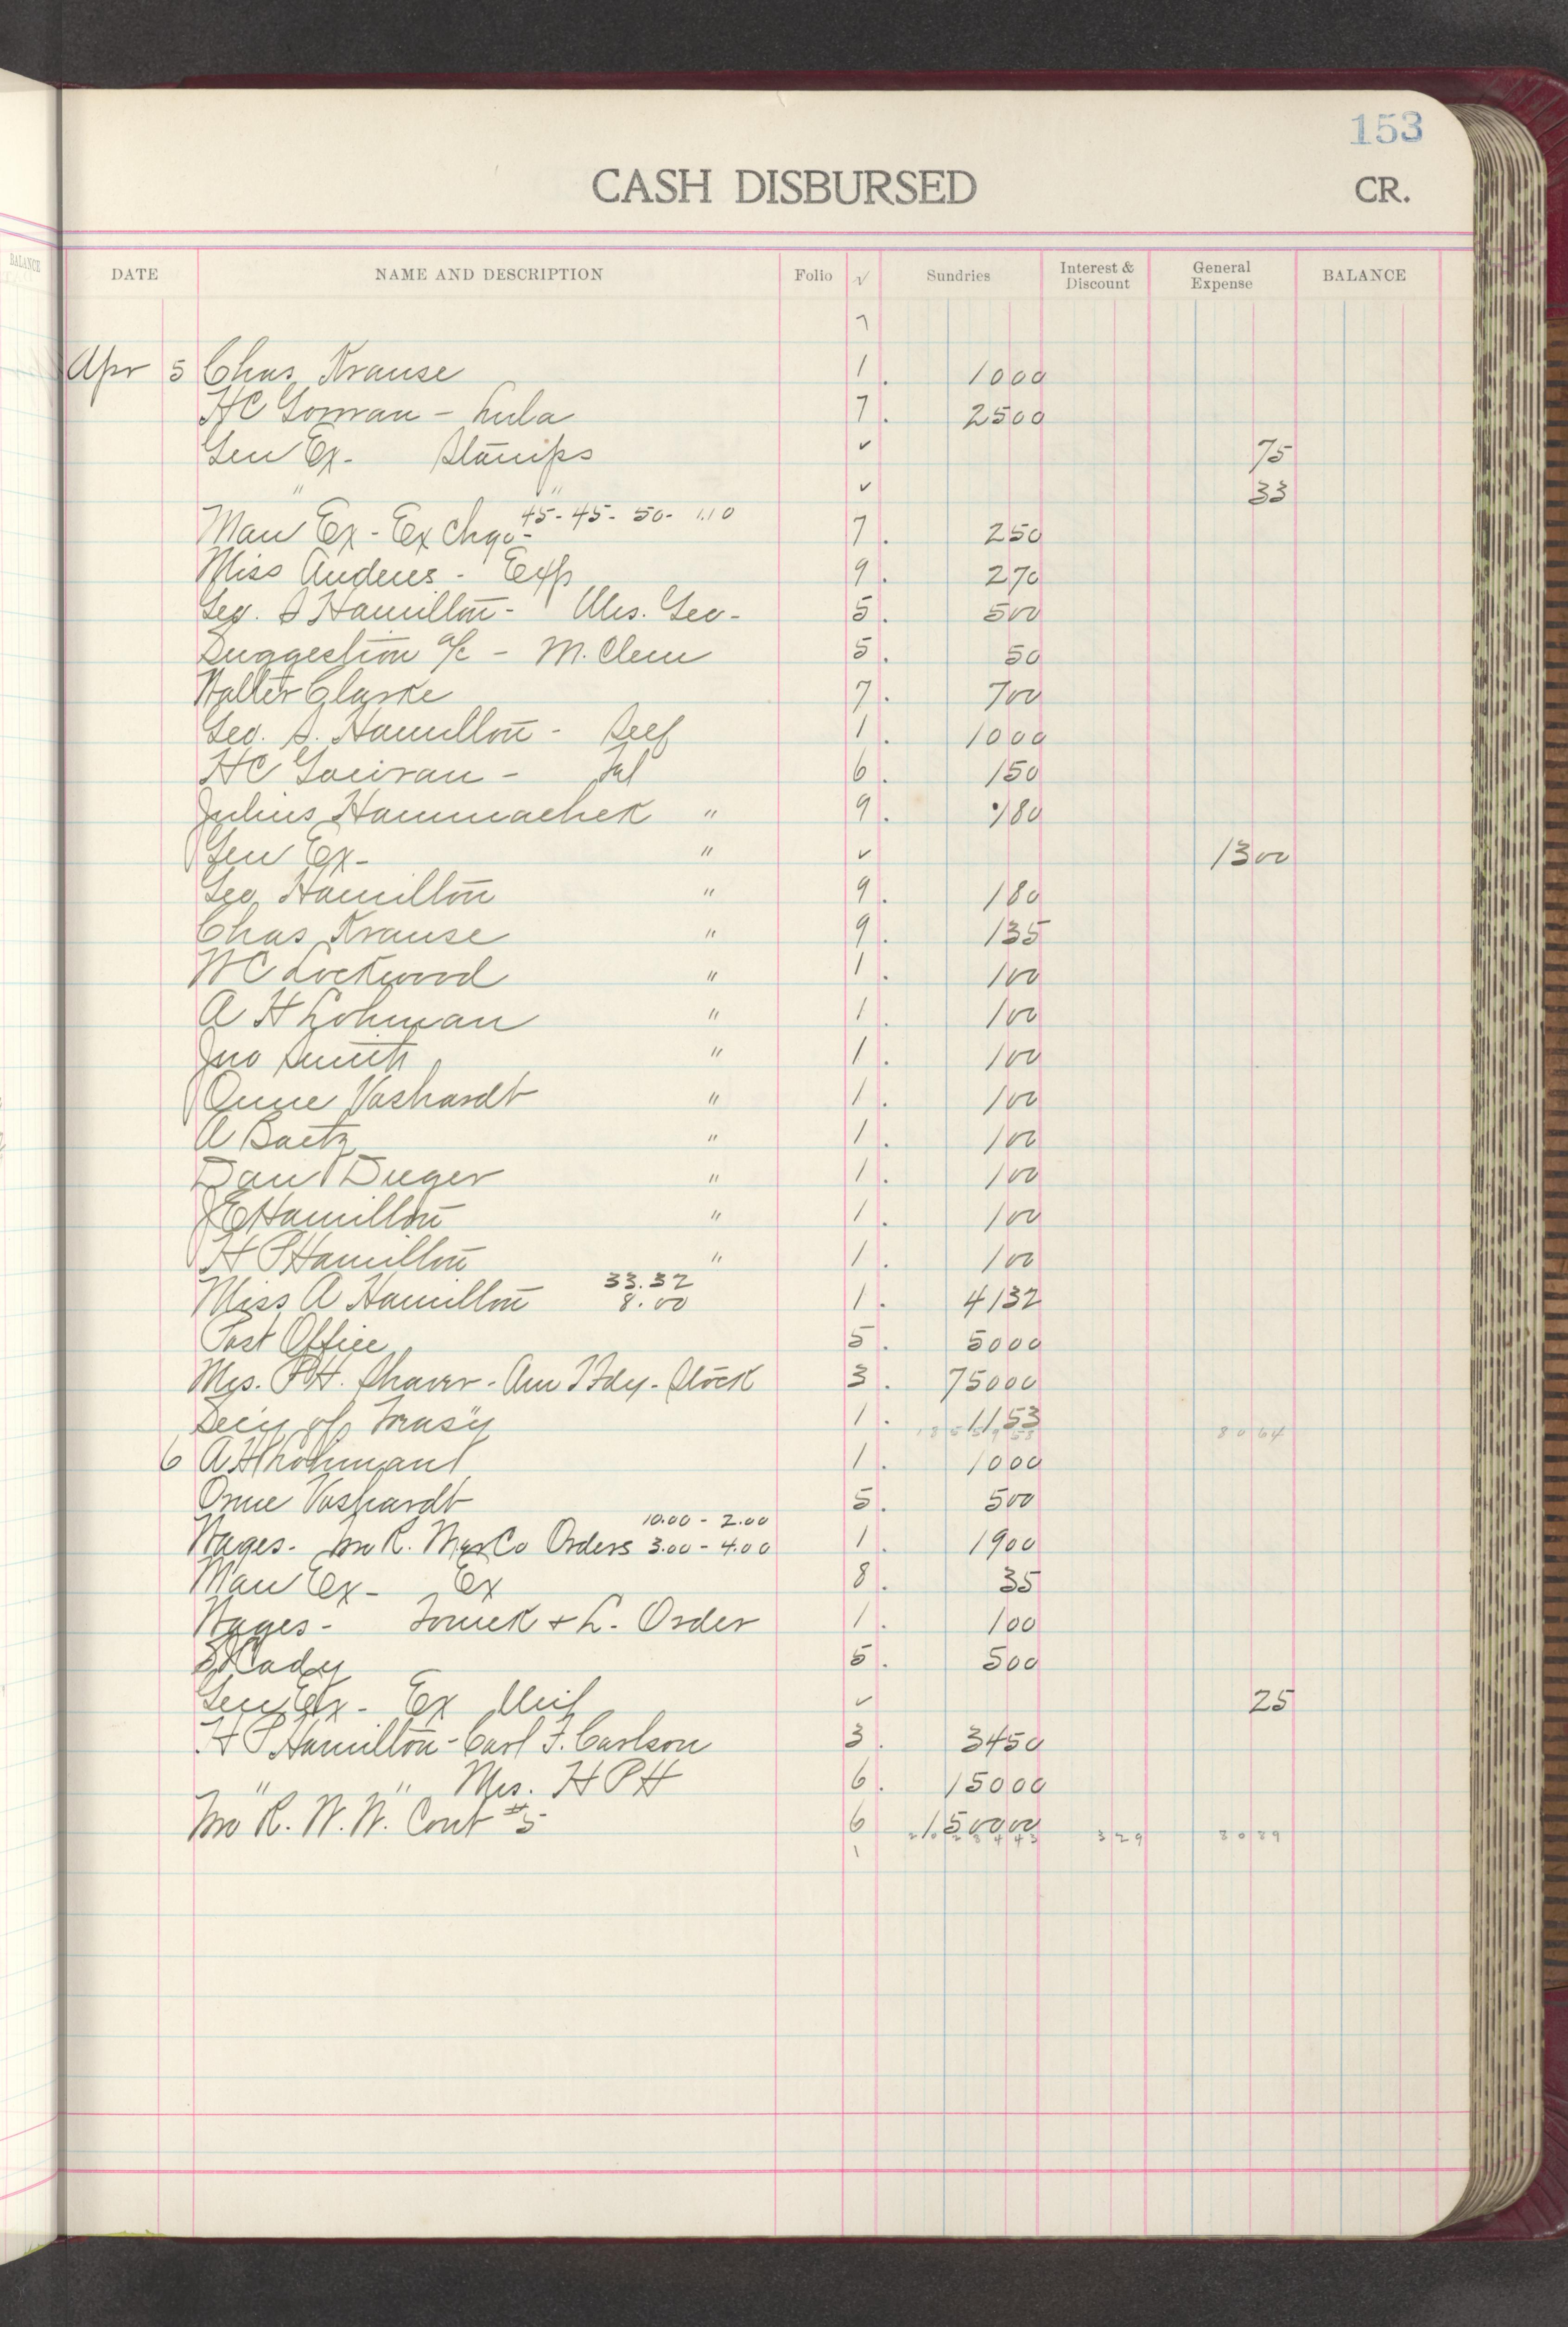 153
CASH DISBURSED CR.
BALANCE
DATE NAME AND DESCRIPTION Folio √ Sundries Interest & Discount General Expense BALANCE
7
Apr 5 Chas Krause 1. 1000
HC Gowran - Lula 7. 2500
Gen Ex- Stamps ✓ 75
" " ✓ 33
45- 45- 50- 1.10
Man Ex - Ex Chgo- 7. 250
Miss Anderes - Exp 9. 270
Geo. S Hamilton - Geo- 5. 500
Suggestion a/c - M. Clem 5. 50
Walter Clarke 7. 700
Geo. S. Hamilton - Self 1. 1000
HC Gowran - Tel 6. 150
Julius Hammachek " 9. 180
Gen Ex- " ✓ 1300
Geo Hamilton " 9. 180
Chas Krause " 9. 135
WC Lockwood " 1. 100
A H Lohman " 1. 100
Jno Smith " 1. 100
Orme Vashardt " 1. 100
A Baetz " 1. 100
Dan Dueger " 1. 100
JE Hamilton " 1. 100
H P Hamilton " 1. 100
33.32
Miss A Hamilton 8.00 1. 4132
Post Office 5. 5000
Mrs. P.H. Shaver - Am T Fdy - Stock 3. 75000
Secy of Treasy 1. 1153
185 58 8064
6 A H Lohman 1. 1000
Orme Vashardt 5. 500
10.00 - 2.00
Wages - Two R. Mfg Co Orders 3.00 - 4.00 1. 1900
Man Ex - Ex 8. 35
Wages - & L. Order 1. 100
Cady 5. 500
Gen Ex - Ex ✓ 25
H P Hamilton - Carl F. Carlson 3. 3450
" " Mrs. H P H 6. 15000
Two R. N. N. Cont #5 6 150000
1 329 8089